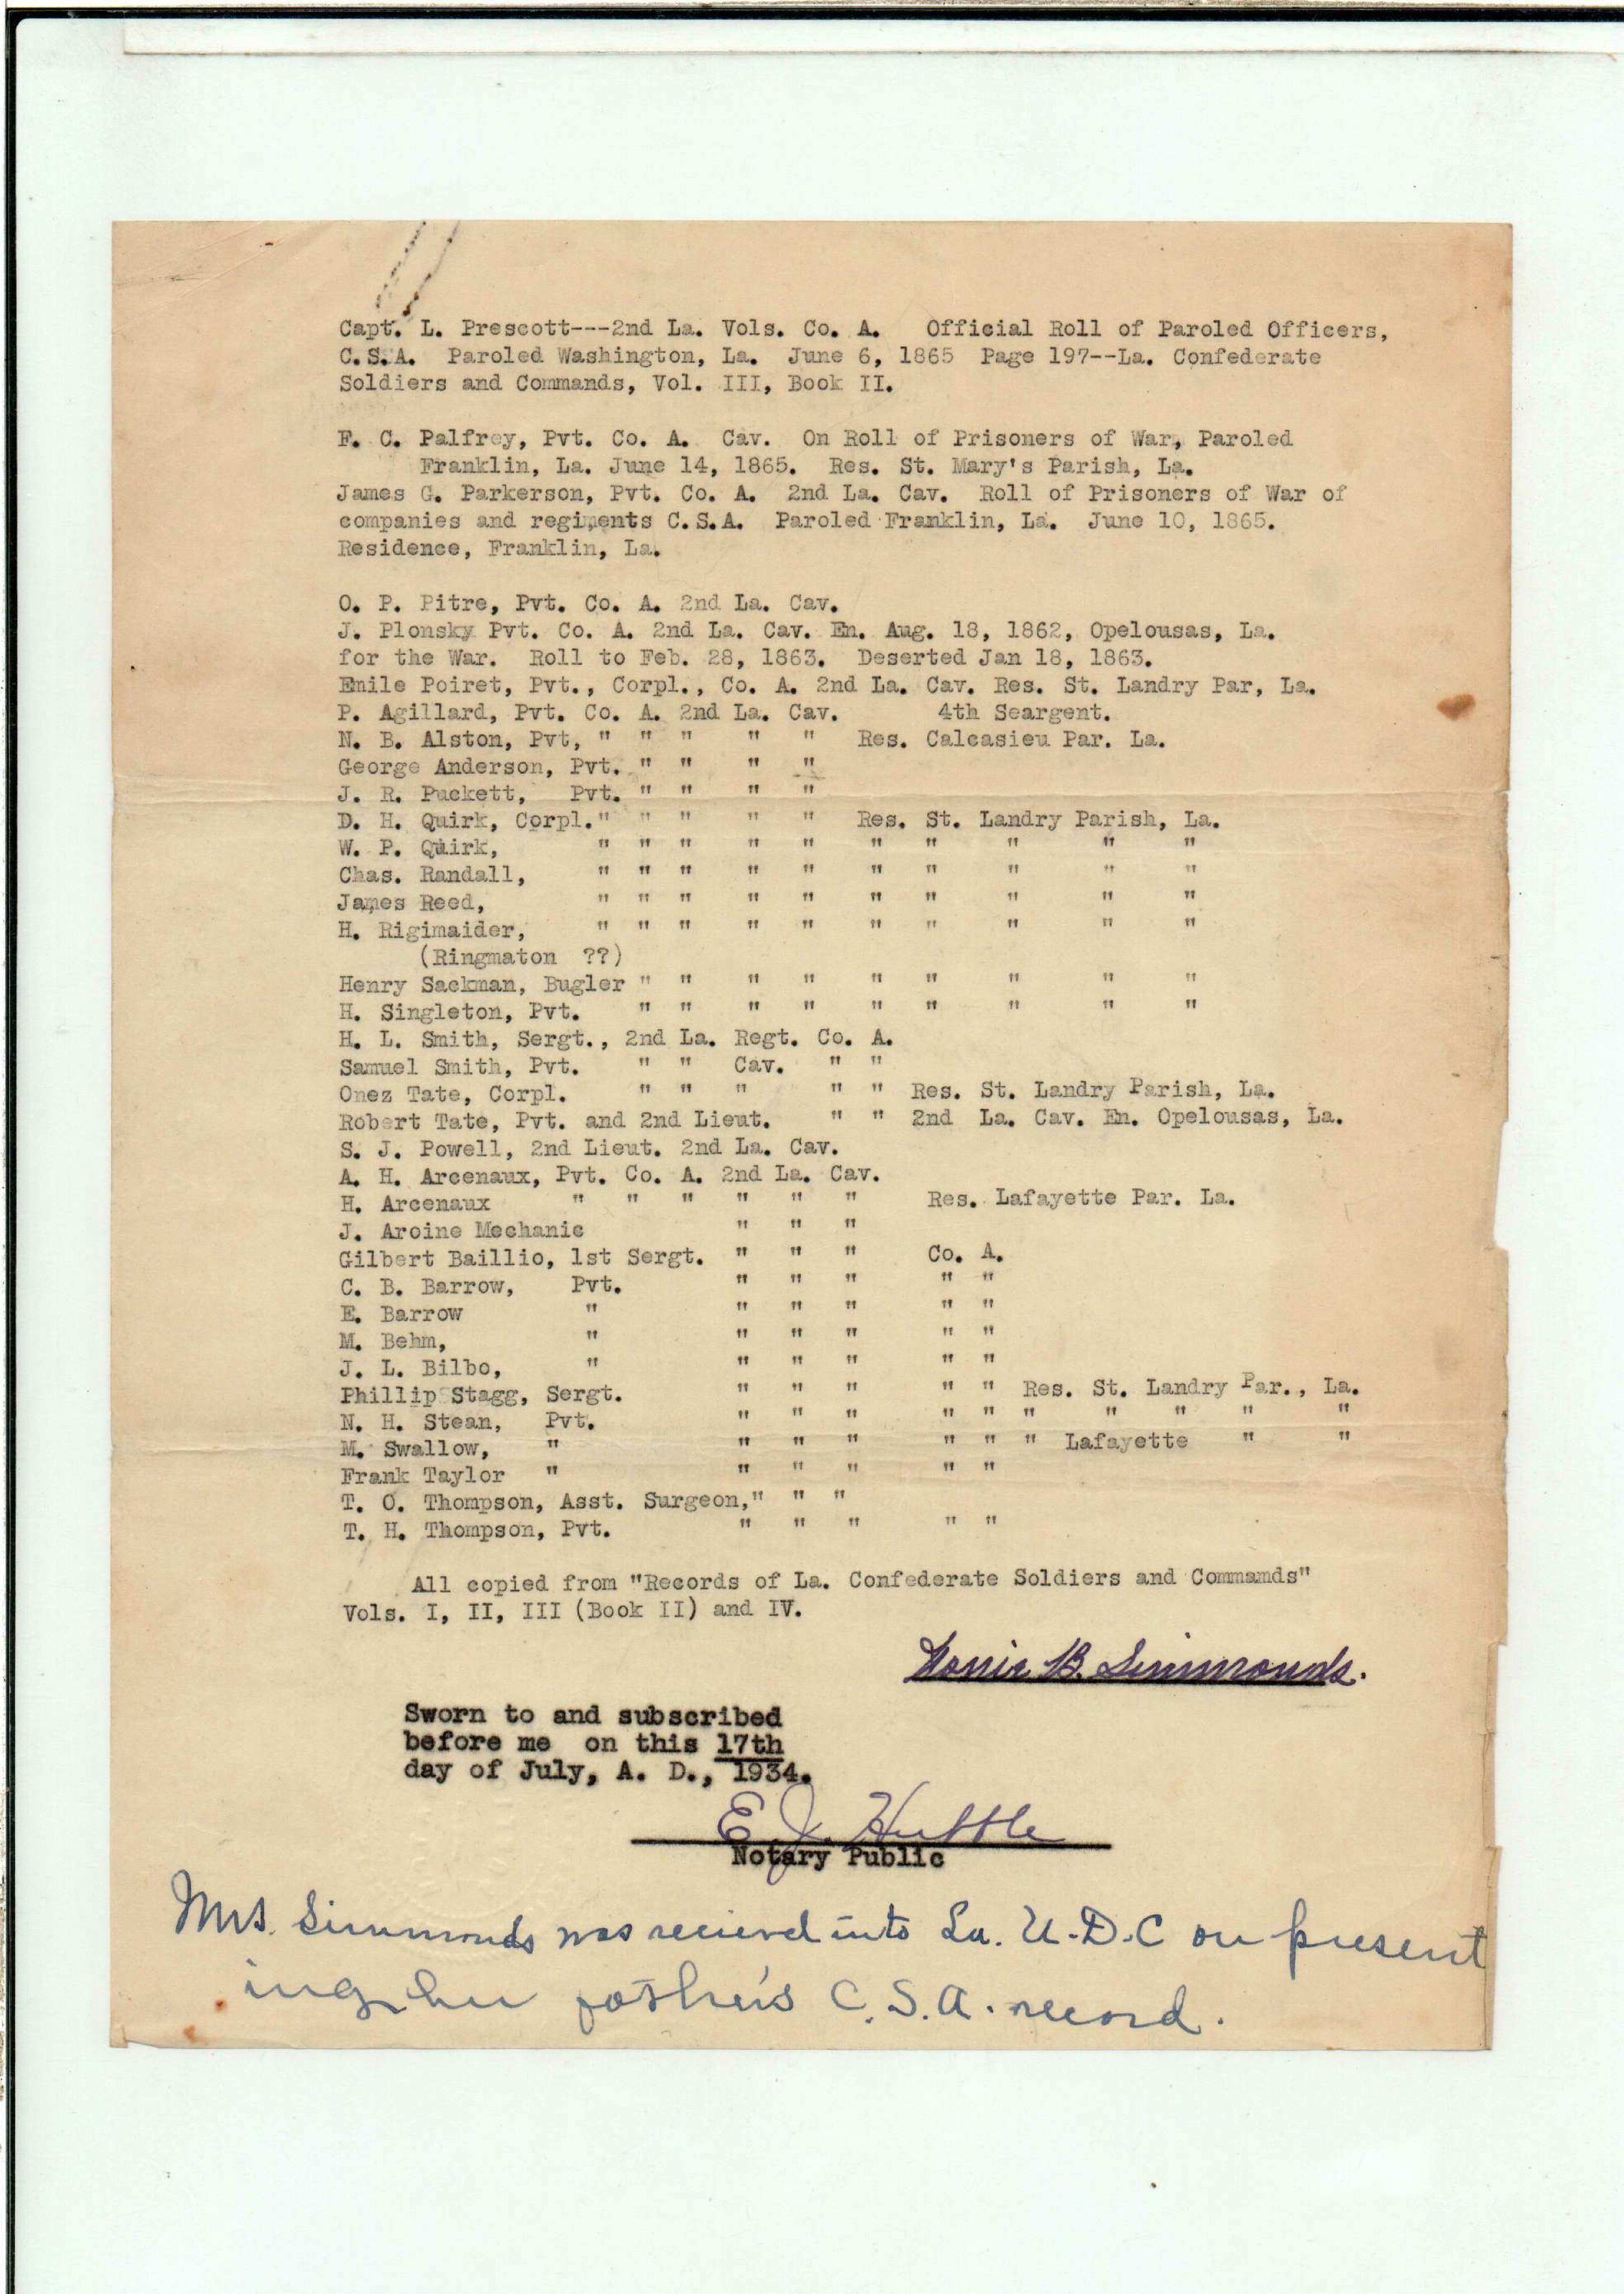 Capt. L. Prescott---2nd La. Vols. Co. A. Official Roll of Paroled Officers,
C.S.A. Paroled Washington, La. June 6, 1865 Page 197--La. Confederate
Soldiers and Commands, Vol. III, Book II.
F. C. Palfrey, Pvt. Co. A. Cav. On Roll of Prisoners of War, Paroled
Franklin, La. June 14, 1865. Res. St. Mary's Parish, La.
James G. Parkerson, Pvt. Co. A. 2nd La. Cav. Roll of Prisoners of War of
companies and regiments C.S.A. Paroled Franklin, La. June 10, 1865.
Residence, Franklin, La.
O. P. Pitre, Pvt. Co. A. 2nd La. Cav.
J. Plonsky Pvt. Co. A. 2nd La. Cav. En. Aug. 18, 1862, Opelousas, La.
for the War. Roll to Feb. 28, 1863. Deserted Jan 18, 1863.
Emile Poiret, Pvt., Corpl., Co. A. 2nd La. Cav. Res. St. Landry Par, La.
P. Agillard, Pvt. Co. A. 2nd La. Cav. 4th Seargent.
N. B. Alston, Pvt, " " " " " Res. Calcasieu Par. La.
George Anderson, Pvt. " " " "
J. R. Puckett, Pvt. " " " "
D. H. Quirk, Corpl." " " " " Res. St. Landry Parish, La.
W. P. Quirk, " " " " " " " " " "
Chas. Randall, " " " " " " " " " "
James Reed, " " " " " " " " " "
H. Rigimaider, " " " " " " " " " "
(Ringmaton ??)
Henry Sackman, Bugler " " " " " " " " "
H. Singleton, Pvt. " " " " " " " " "
H. L. Smith, Sergt., 2nd La. Regt. Co. A.
Samuel Smith, Pvt. " " Cav. " "
Onez Tate, Corpl. " " " " " Res. St. Landry Parish, La.
Robert Tate, Pvt. and 2nd Lieut. " " 2nd La. Cav. En. Opelousas, La.
S. J. Powell, 2nd Lieut. 2nd La. Cav.
A. H. Arcenaux, Pvt. Co. A. 2nd La. Cav.
H. Arcenaux " " " " " " Res. Lafayette Par. La.
J. Aroine Mechanic " " "
Gilbert Baillio, 1st Sergt. " " " Co. A.
C. B. Barrow, Pvt. " " " " "
E. Barrow " " " " " "
M. Behm, " " " " " "
J. L. Bilbo, " " " " " "
Phillip Stagg, Sergt. " " " " " Res. St. Landry Par., La.
N. H. Stean, Pvt. " " " " " " " " " "
M. Swallow, " " " " " " " Lafayette " "
Frank Taylor " " " " " "
T. O. Thompson, Asst. Surgeon," " "
T. H. Thompson, Pvt. " " " " "
All copied from "Records of La. Confederate Soldiers and Commamds"
Vols. I, II, III (Book II) and IV.
B. Simmonds.
Sworn to and subscribed
before me on this 17th
day of July, A. D., 1934.
E J. Huttle
Notary Public
Mrs. Simmonds was recieved into La. U.D.C on present
ing her father's C.S.A. record.